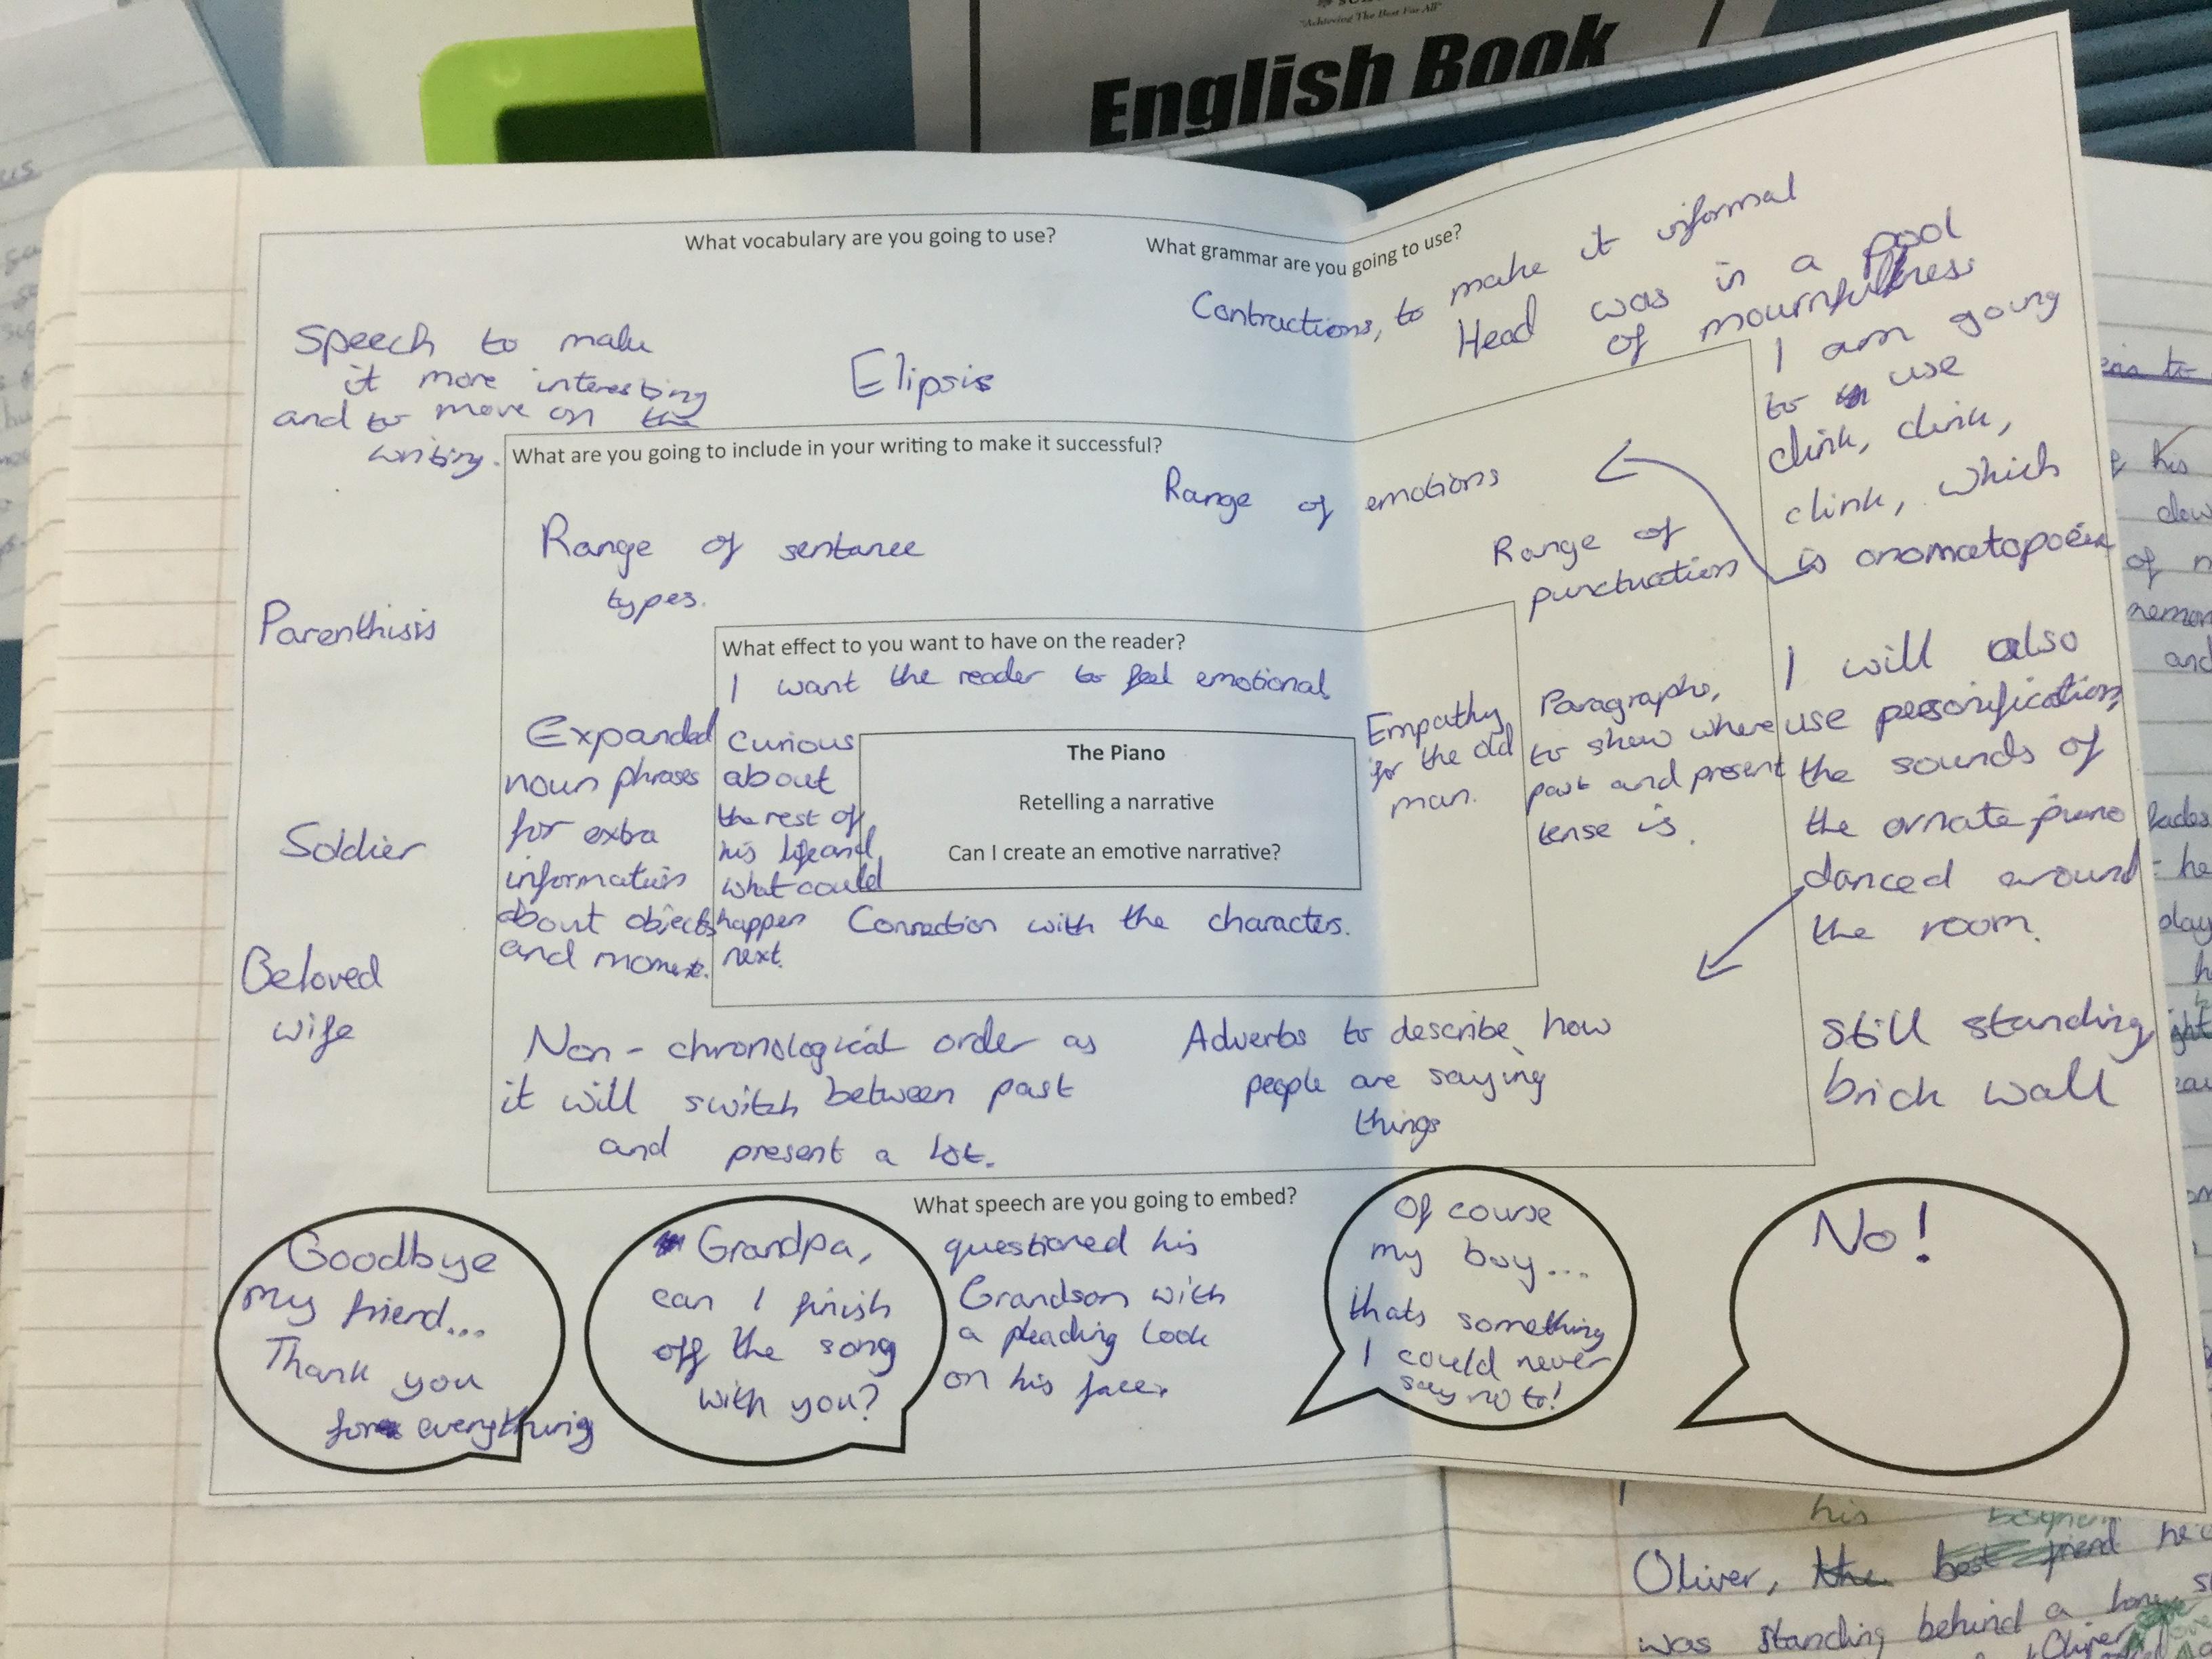 "Achieving The Best For All"
English Book
What vocabulary are you going to use?
What grammar are you going to use?
Speech to make
it more interesting
and to move on the
writing.
Elipsis
Contractions, to make it informal
Head was in a pool
of mournfullness
I am going
to use
clink, clink,
clink, which
is onomatopoeia
Parenthisis
Soldier
Beloved
wife
I will also
use personification,
the sounds of
the ornate piano
danced around
the room.
Still standing
brick wall
What are you going to include in your writing to make it successful?
Range of emotions
Range of sentance
types.
Range of
punctuation
Expanded
noun phrases
for extra
information
about objects
and moment.
Paragraphs,
to show where
past and present
tense is.
Non-chronological order as
it will switch between past
and present a lot.
Adverbs to describe how
people are saying
things
What effect to you want to have on the reader?
I want the reader to feel emotional
Curious
about
the rest of
his life and
what could
happen
next.
Empathy
for the old
man.
Connection with the characters.
The Piano
Retelling a narrative
Can I create an emotive narrative?
What speech are you going to embed?
Goodbye
my friend...
Thank you
for everything
Grandpa,
can I finish
off the song
with you?
questioned his
Grandson with
a pleading look
on his face.
Of course
my boy...
thats something
I could never
say no to!
No!
his
Oliver, the best friend
was standing behind a